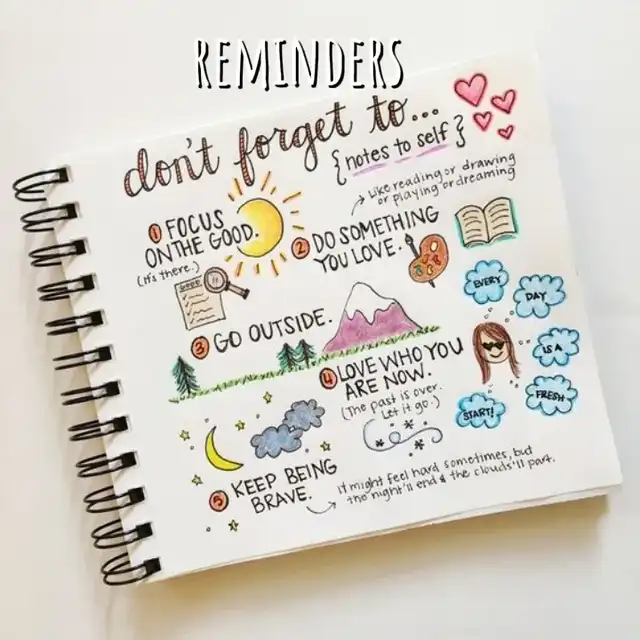 REMINDERS
don't forget to...
{notes to self}
Like reading or drawing
or playing or dreaming
1 FOCUS
ON THE GOOD.
(it's there.)
GOOD
2 DO SOMETHING
YOU LOVE.
3 GO OUTSIDE.
4 LOVE WHO YOU
ARE NOW.
(The past is over.
Let it go.)
EVERY
DAY
IS A
FRESH
START!
5 KEEP BEING
BRAVE.
it might feel hard sometimes, but
the night'll end & the clouds'll part.